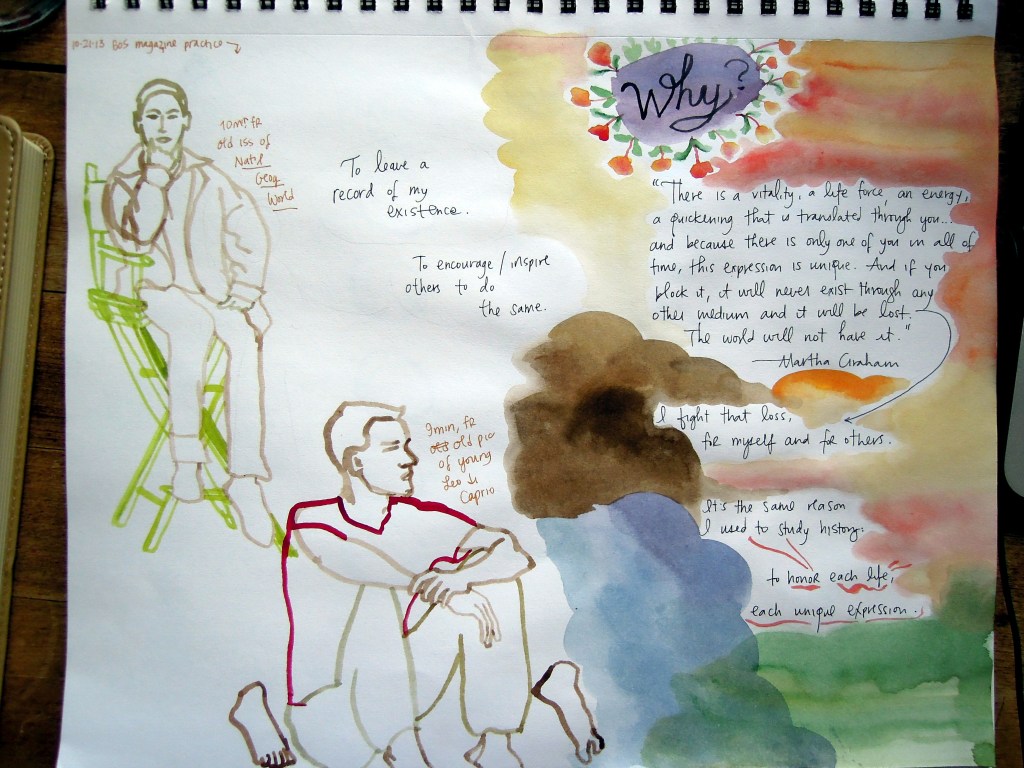 10-21-13 BOS magazine practice
10 min, fr
old iss of
Nat'l
Geog
World
To leave a
record of my
existence.
To encourage / inspire
others to do
the same.
3 min, fr
old pic
of young
Leo di
Caprio
Why?
"There is a vitality, a life force, an energy,
a quickening that is translated through you...
and because there is only one of you in all of
time, this expression is unique. And if you
block it, it will never exist through any
other medium and it will be lost.
The world will not have it."
—Martha Graham
I fight that loss,
for myself and for others.
It's the same reason
I used to study history:
to honor each life,
each unique expression.